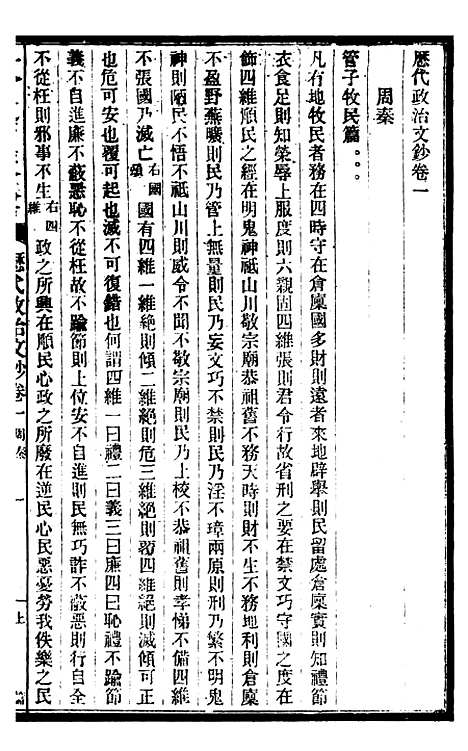 歷代政治文鈔卷一
周秦
管子牧民篇
凡有地牧民者務在四時守在倉廩國多財則遠者來地辟舉則民留處倉廩實則知禮節
衣食足則知榮辱上服度則六親固四維張則君令行故省刑之要在禁文巧守國之度在
飾四維順民之經在明鬼神祗山川敬宗廟恭祖舊不務天時則財不生不務地利則倉廩
不盈野蕪曠則民乃管上無量則民乃妄文巧不禁則民乃淫不璋兩原則刑乃繁不明鬼
神則陋民不悟不祗山川則威令不聞不敬宗廟則民乃上校不恭祖舊則孝悌不備四維
不張國乃滅亡右國頌國有四維一維絕則傾二維絕則危三維絕則覆四維絕則滅傾可正
也危可安也覆可起也滅不可復錯也何謂四維一曰禮二曰義三曰廉四曰恥禮不踰節
義不自進廉不蔽惡恥不從枉故不踰節則上位安不自進則民無巧詐不蔽惡則行自全
不從枉則邪事不生右四維政之所興在順民心政之所廢在逆民心民惡憂勞我佚樂之民
歷代政治文鈔卷一 周秦 一 上